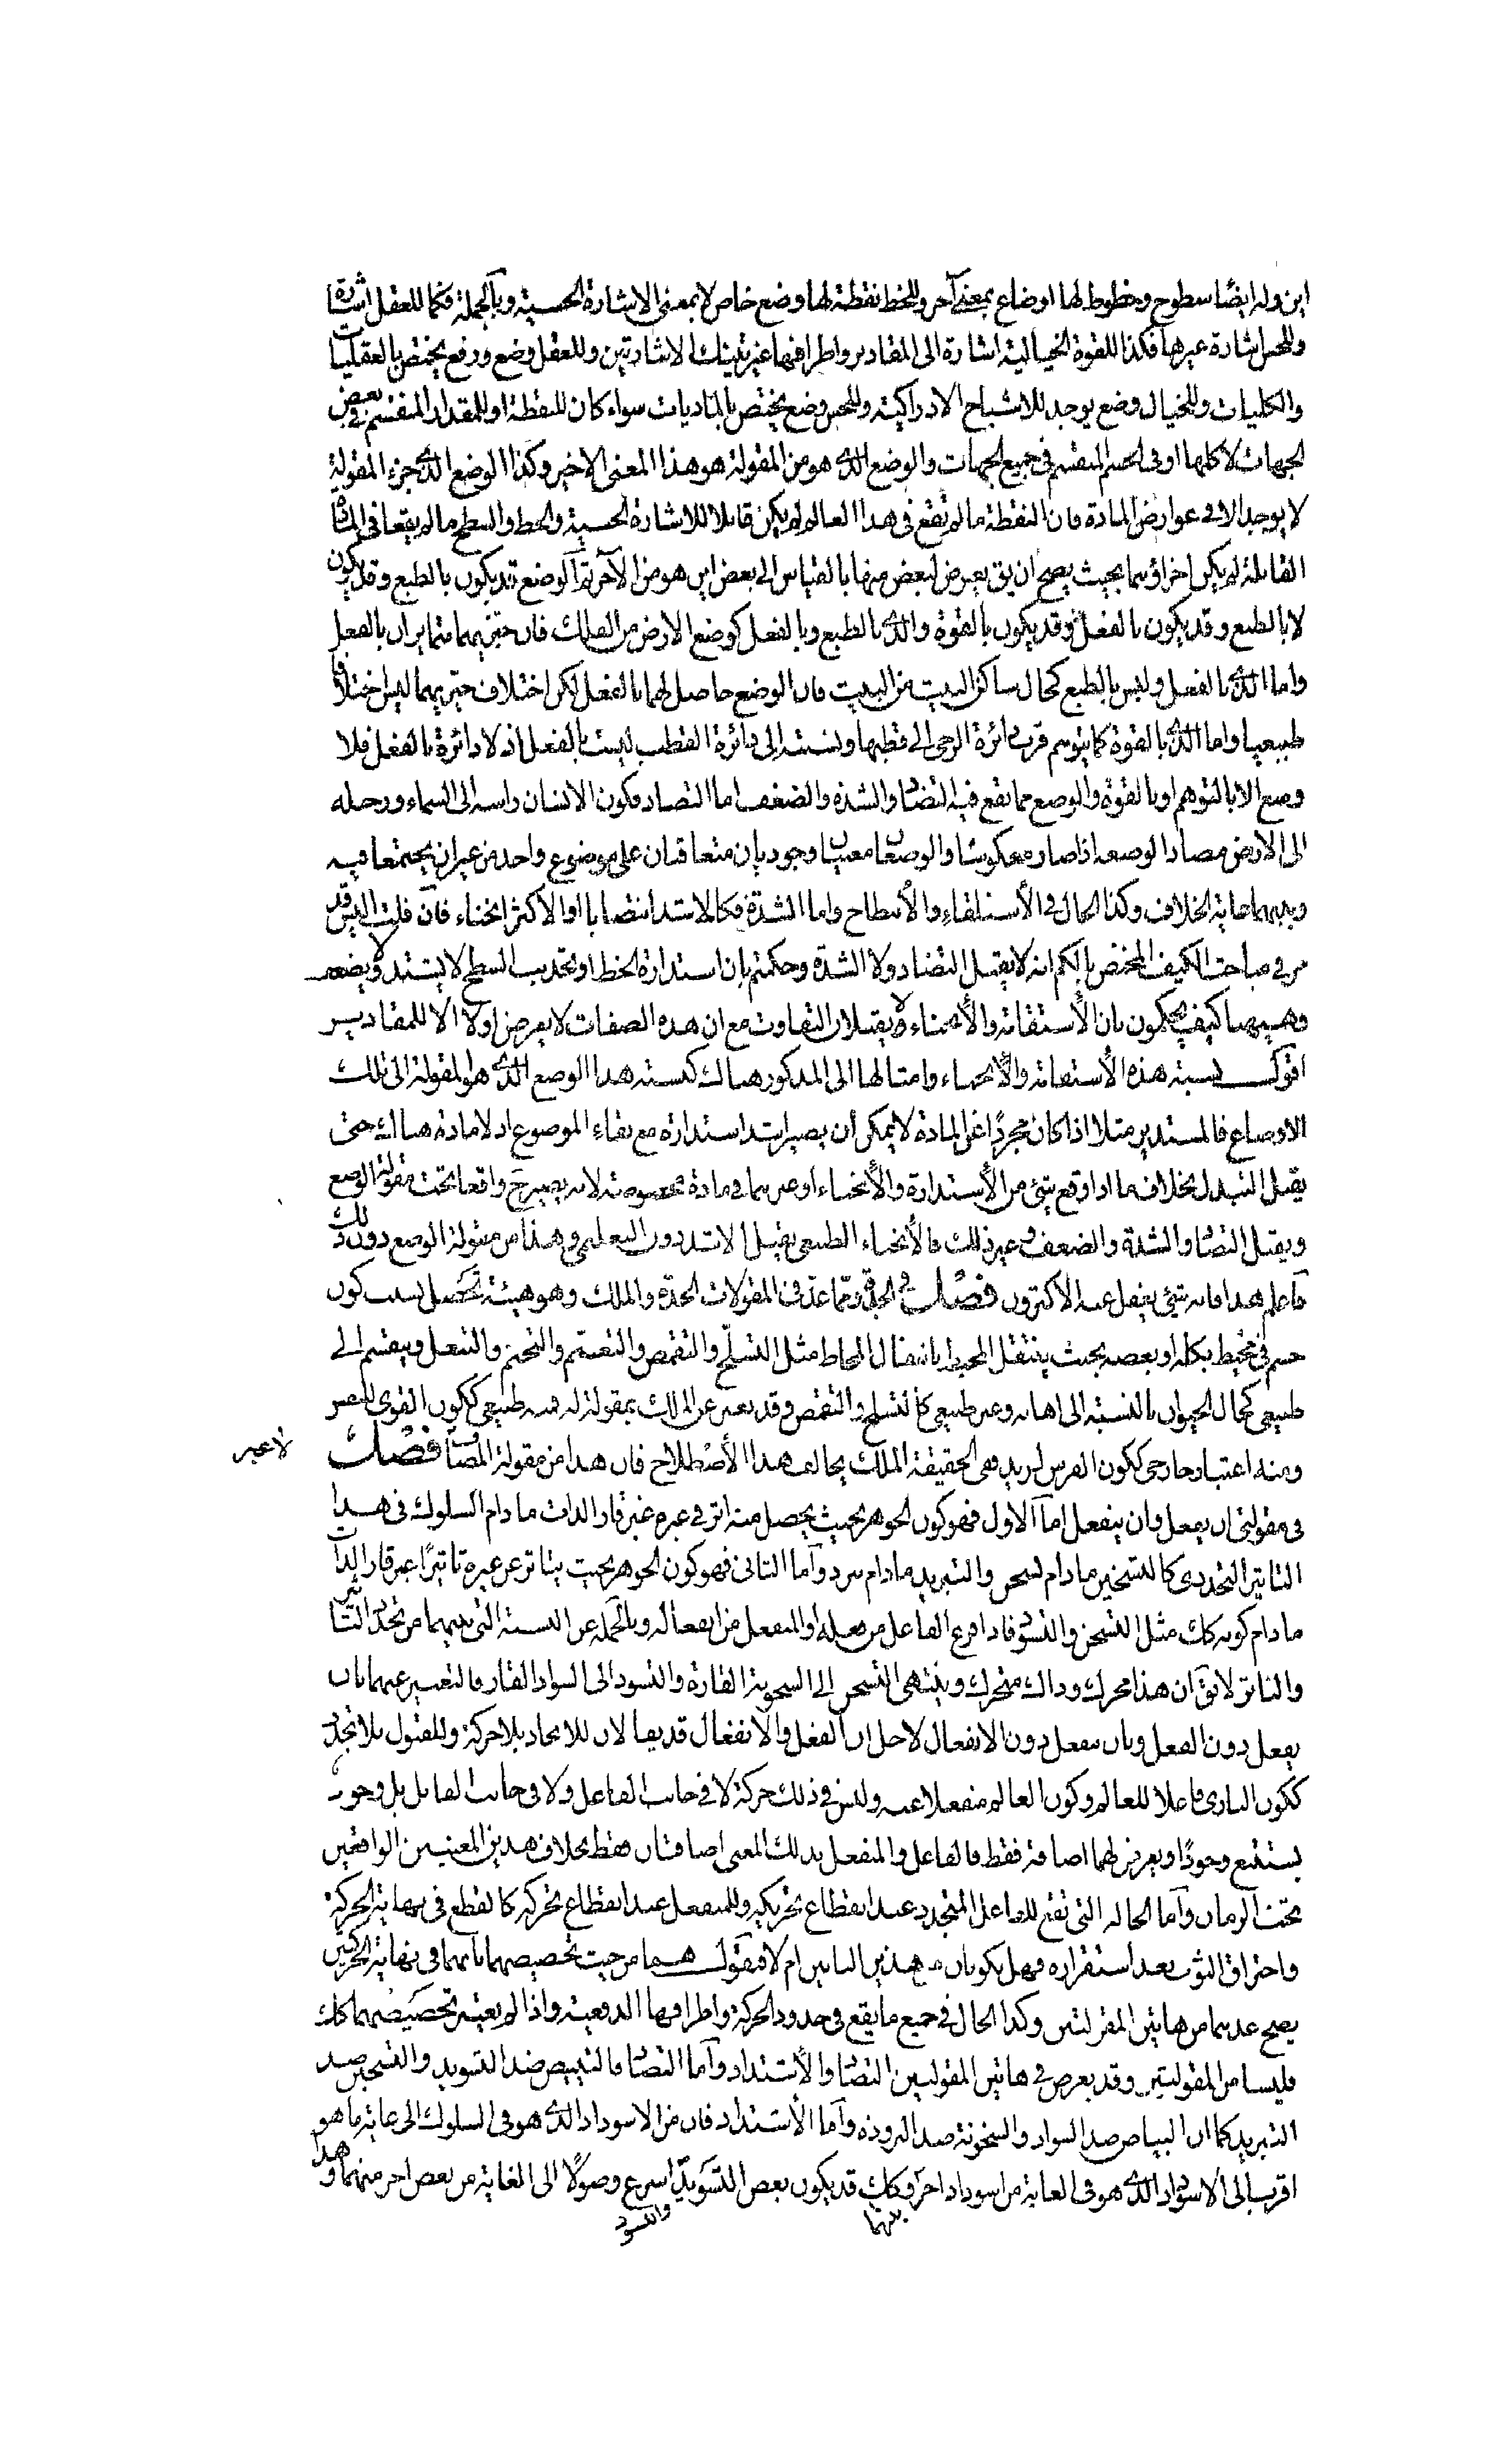 اين وله ايضا سطوح وخطوط لها اوضاع بمعنى آخر وللخط نقطة لها وضع خاص لا بمعنى الاشارة الحسية وبالجملة فكما للعقل اشارة
وللحس اشارة غيرها فكذا للقوة الخيالية اشارة الى المقادير واطرافها غير تينك الاشارتين وللعقل وضع ورفع يختص بالعقليات
والكليات وللخيال وضع يوجد للاشباح الادراكية وللحس وضع يختص بالماديات سواء كان للنقطة او للمقدار المنقسم فى بعض
الجهات لا كلها او فى الجسم المنقسم فى جميع الجهات والوضع الذى هو من المقولة هو هذا المعنى الاخير وكذا الوضع الذى جزء المقولة
لا يوجد الا فى عوارض المادة فان النقطة ما لم تقع فى هذا العالم لم يكن قابلا للاشارة الحسية والخط والسطح ما لم يقعا فى المادة
القابلة لم يكن اجزاؤهما بحيث يصح ان يق يعرض لبعض منها بالقياس الى بعض اين هو من الآخر ثم الوضع قد يكون بالطبع وقد يكون
لا بالطبع وقد يكون بالفعل وقد يكون بالقوة والذى بالطبع وبالفعل كوضع الارض من الفلك فان حيزيهما متمايزان بالفعل
واما الذى بالفعل وليس بالطبع كحال ساكن البيت من البيت فان الوضع حاصل لهما بالفعل لكن اختلاف حيزيهما ليس اختلافا
طبيعيا واما الذى بالقوة كما يتوهم قرب دائرة الرحى الى قطبها ونسبته الى دائرة القطب ليست بالفعل اذ لا دائرة بالفعل فلا
وضع الا بالتوهم او بالقوة والوضع مما يقع فيه التضاد والشدة والضعف اما التضاد فكون الانسان راسه الى السماء ورجله
الى الارض مضاد لوضعه اذا صار معكوسا والوضعان معنيان وجوديان متعاقبان على موضوع واحد من غير ان يجتمعا فيه
وبينهما غاية الخلاف وكذا الحال فى الأستلقاء والأنبطاح واما الشدة فكالاشد انتصابا او الاكثر انحناء فان قلت اليس قد
مر فى مباحث الكيف المختص بالكم انه لا يقبل التضاد ولا الشدة وحكمتم بان استدارة الخط او تحديب السطح لا يشتد ولا يضعف
وهيهنا كيف يحكمون بان الأستقامة والأنحناء لا يقبلان التفاوت مع ان هذه الصفات لا يعرض اولا الا للمقادير
اقول نسبة هذه الأستقامة والأنحناء وامثالها الى المذكور هناك كنسبة هذا الوضع الذى هو المقولة الى تلك
الاوضاع فالمستدير مثلا اذا كان مجردا عن المادة لا يمكن أن يصير اشد استدارة مع بقاء الموضوع اذ لا مادة هناك حتى
يقبل التبدل بخلاف ما اذا وقع شئ من الأستدارة والأنحناء او غيرهما فى مادة مخصوصة لانه يصير ح واقعا تحت مقولة الوضع
ويقبل التضاد والشدة والضعف وغير ذلك فالأنحناء الطبيعى يقبل الاشتداد دون التعليمى وهذا من مقولة الوضع دون ذلك
فاعلم هذا فانه شئ يغفل عنه الاكثرون فصل فى الجدة ومما عد فى المقولات الجدة والملك وهو هيئة تحصل بسبب كون
جسم فى محيط بكله او بعضه بحيث ينتقل المحيط بانتقال المحاط مثل التسلح والتقمص والتعمم والتختم والتنعل وينقسم الى
طبيعى كحال الحيوان بالنسبة الى اهابه وغير طبيعى كالتسلح والتقمص وقد يعبر عن الملك بمقولة له فمنه طبيعى ككون القوى للنفس
ومنه اعتبار خارجى ككون الفرس لزيد ففى الحقيقة الملك يخالف هذا الأصطلاح فان هذا من مقولة المضاف فصل
لا غير
فى مقولتى ان يفعل وان ينفعل اما الاول فهو كون الجوهر بحيث يحصل منه اثر فى غيره غير قار الذات ما دام السلوك فى هذا
التاثير التجددى كالتسخين ما دام يسخن والتبريد ما دام يبرد وآما الثانى فهو كون الجوهر بحيث يتاثر عن غيره تاثيرا غير قار الذات
ما دام كونه كك مثل التسخن والتسود فاذا فرغ الفاعل من فعله او المنفعل من انفعاله وبالجملة عن النسبة التى بينهما من تجدد التاثير
والتاثر لا يق ان هذا محرك وذاك متحرك وينتهى التسخن الى السخونة القارة والتسود الى السواد القار فالتعبير عنهما بان
يفعل دون الفعل وبان ينفعل دون الانفعال لاجل ان الفعل والانفعال قد يقالان للايجاد بلا حركة وللقبول بلا تجدد
ككون البارى فاعلا للعالم وكون العالم منفعلا عنه وليس فى ذلك حركة لا فى جانب الفاعل ولا فى جانب القابل بل وجود
يستتبع وجودا ويعرض لهما اضافة فقط فالفاعل والمنفعل بذلك المعنى اضافتان فقط بخلاف هذين المعنيين الواقعين
تحت الزمان وآما الحالة التى تقع للفاعل المتجدد عند انقطاع تحريكه وللمنفعل عند انقطاع تحركه كالقطع فى نهاية الحركة
واحتراق الثوب بعد استقراره فهل يكونان من هذين البابين ام لا فنقول هما من حيث تخصيصهما بانهما فى نهاية الحركتين
يصح عدهما من هاتين المقولتين وكذا الحال فى جميع ما يقع فى حدود الحركة واطرافها الدفعية واذا لم يعتبر تخصيصهما كك
فليسا من المقولتين وقد يعرض فى هاتين المقولتين التضاد والأشتداد وآما التضاد فالتبييض ضد التسويد والتسخين ضد
التبريد كما ان البياض ضد السواد والسخونة ضد البرودة وآما الأشتداد فان من الاسوداد الذى هو فى السلوك الى غاية ما هو
اقرب الى الاسوداد الذى هو فى الغاية من اسوداد آخر وكك قد يكون بعض التسويد اسرع وصولا الى الغاية من بعض آخر منهما وهذا
والتسود